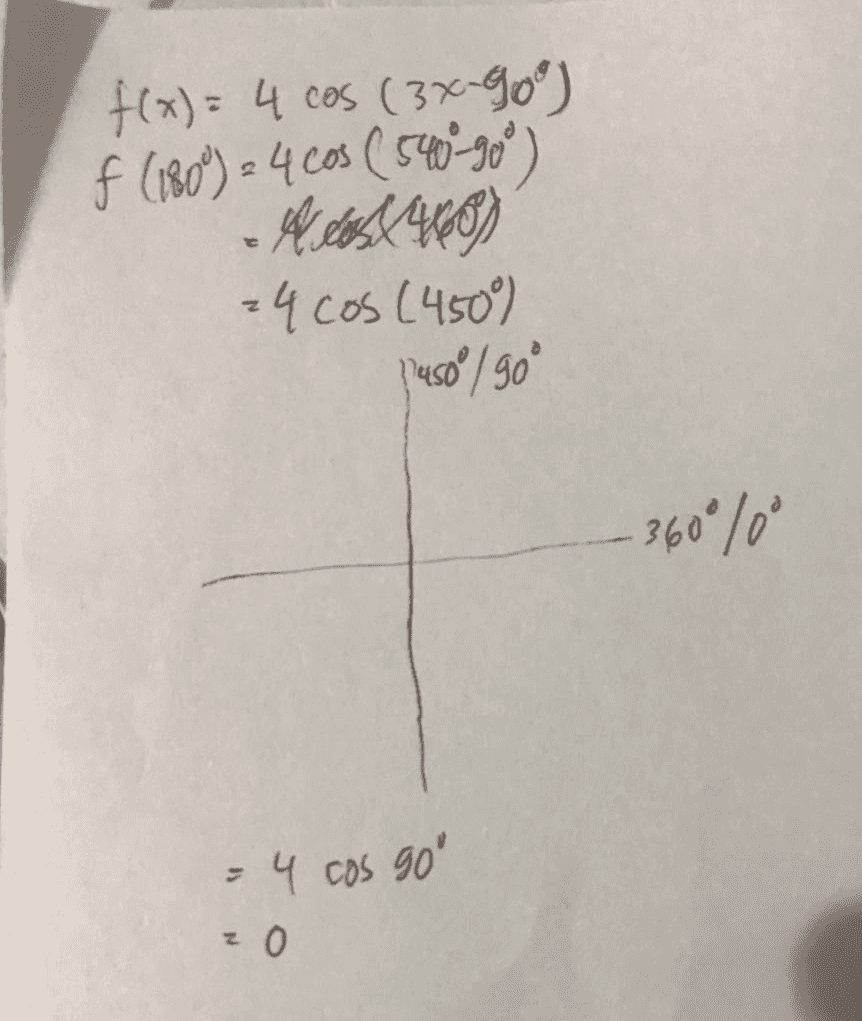 f(x) = 4 cos (3x-90°)
f (180°) = 4 cos (540°-90°)
=
= 4 cos (450°)
450°/90°
360°/0°
= 4 cos 90°
= 0